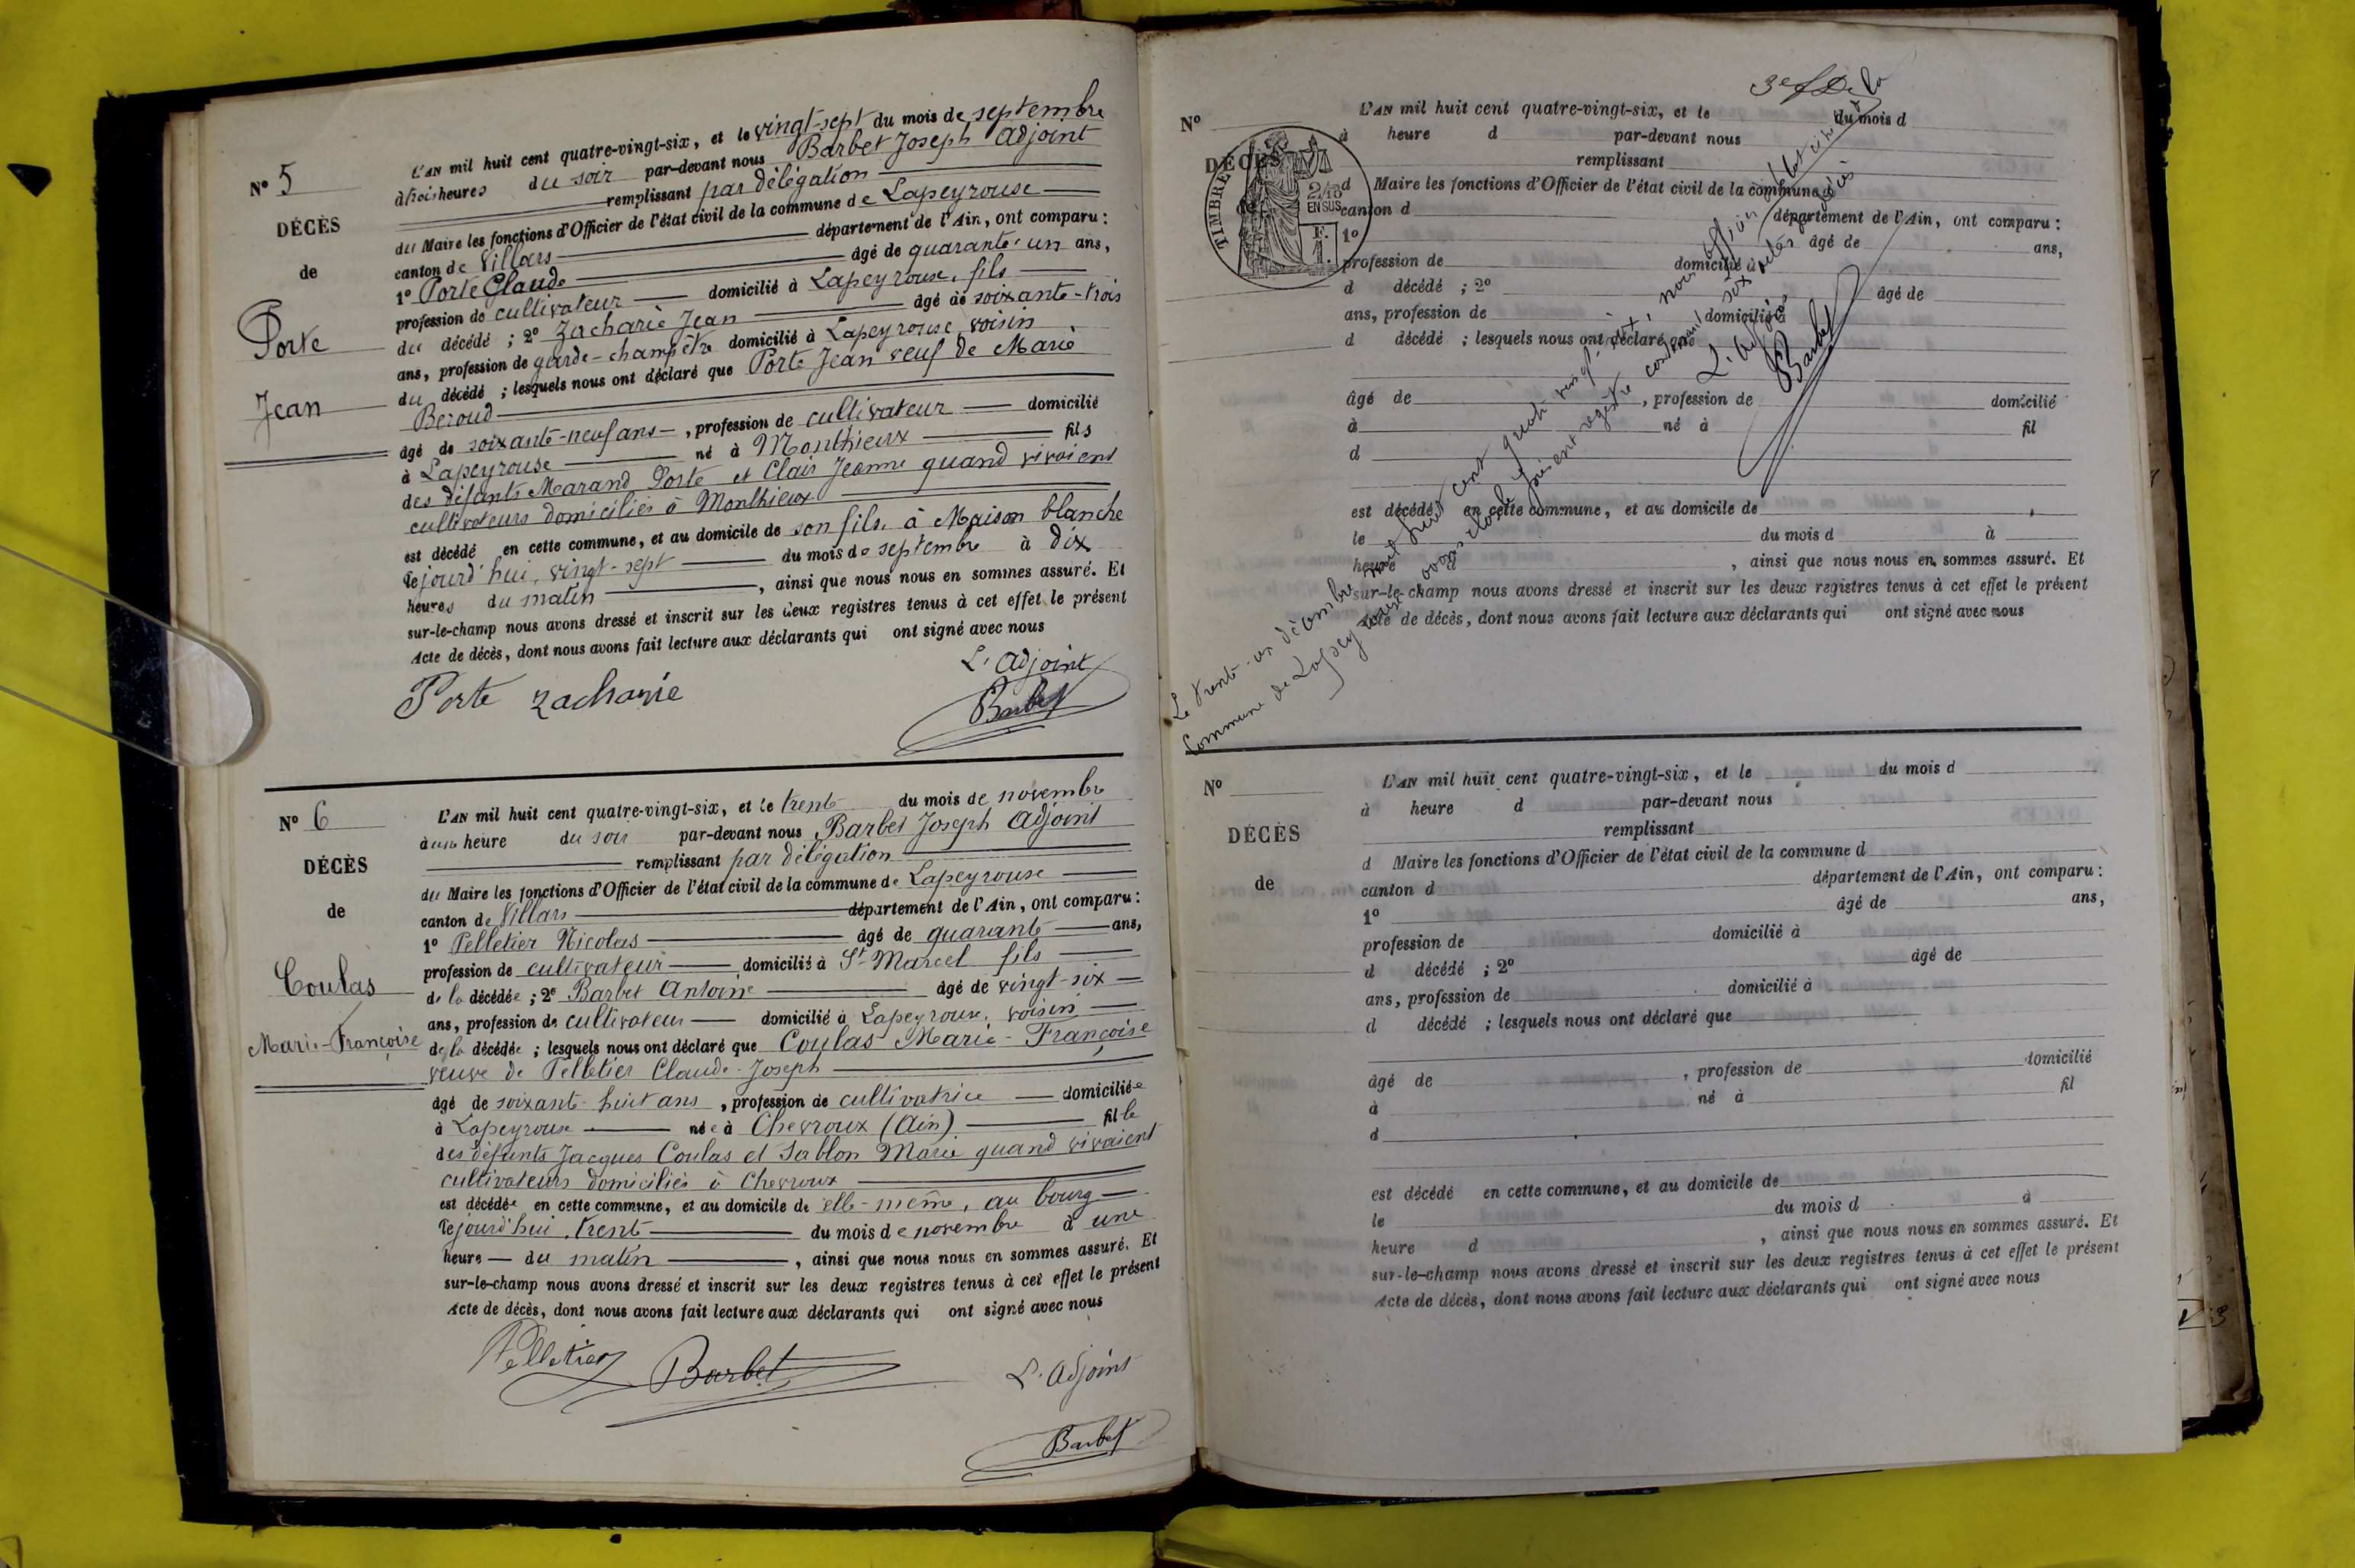 N° 5
DÉCÈS
de
Porte
Jean
L'AN mil huit cent quatre-vingt-six, et le vingt-sept du mois de septembre
à trois heures du soir par-devant nous Barbet Joseph adjoint
remplissant par délégation
du Maire les fonctions d'Officier de l'état civil de la commune de Lapeyrouse
canton de Villars département de l'Ain, ont comparu :
1° Porte Claude âgé de quarante-un ans,
profession de cultivateur domicilié à Lapeyrouse, fils
du décédé ; 2° Zacharie Jean âgé de soixante-trois
ans, profession de garde-champêtre domicilié à Lapeyrouse, voisin
du décédé ; lesquels nous ont déclaré que Porte Jean veuf de Marie
Beroud
âgé de soixante-neuf ans, profession de cultivateur domicilié
à Lapeyrouse né à Monthieux fils
des défunts Marand Porte et Clair Jeanne quand vivaient
cultivateurs domiciliés à Monthieux
est décédé en cette commune, et au domicile de son fils, à Maison blanche
le jourd'hui, vingt-sept du mois de septembre à dix
heures du matin, ainsi que nous nous en sommes assuré. Et
sur-le-champ nous avons dressé et inscrit sur les deux registres tenus à cet effet le présent
Acte de décès, dont nous avons fait lecture aux déclarants qui ont signé avec nous
L'adjoint
Porte Zacharie
Barbet
N° 6
DÉCÈS
de
Coulas
Marie-Françoise
L'AN mil huit cent quatre-vingt-six, et le trente du mois de novembre
à une heure du soir par-devant nous Barbet Joseph adjoint
remplissant par délégation
du Maire les fonctions d'Officier de l'état civil de la commune de Lapeyrouse
canton de Villars département de l'Ain, ont comparu :
1° Pelletier Nicolas âgé de quarante ans,
profession de cultivateur domicilié à St-Marcel fils
de la décédée ; 2° Barbet Antoine âgé de vingt-six
ans, profession de cultivateur domicilié à Lapeyrouse, voisin
de la décédée ; lesquels nous ont déclaré que Coulas Marie-Françoise
veuve de Pelletier Claude-Joseph
âgé de soixante-huit ans, profession de cultivatrice domiciliée
à Lapeyrouse née à Chevroux (Ain) fille
des défunts Jacques Coulas et Sablon Marie quand vivaient
cultivateurs domiciliés à Chevroux
est décédée en cette commune, et au domicile de elle-même, au bourg
le jourd'hui, trente du mois de novembre à une
heure du matin, ainsi que nous nous en sommes assuré. Et
sur-le-champ nous avons dressé et inscrit sur les deux registres tenus à cet effet le présent
Acte de décès, dont nous avons fait lecture aux déclarants qui ont signé avec nous
Pelletier Barbet
L'adjoint
Barbet
N°
DÉCÈS
de
TIMBRE
2/10
EN SUS
F.
1.
L'AN mil huit cent quatre-vingt-six, et le du mois d
à heure d par-devant nous
remplissant
d Maire les fonctions d'Officier de l'état civil de la commune d
canton d département de l'Ain, ont comparu :
1° âgé de ans,
profession de domicilié à
d décédé ; 2° âgé de
ans, profession de domicilié à
d décédé ; lesquels nous ont déclaré que
âgé de , profession de domicilié
à né à fil
d
est décédé en cette commune, et au domicile de
le du mois d à
heure d , ainsi que nous nous en sommes assuré. Et
sur-le-champ nous avons dressé et inscrit sur les deux registres tenus à cet effet le présent
Acte de décès, dont nous avons fait lecture aux déclarants qui ont signé avec nous
Le trente-un décembre mil huit cent quatre vingt-six, nous officier de l'état civil de la
Commune de Lapeyrouse avons clos le présent registre contenant six actes de décès
L'adjoint
Barbet
N°
DÉCÈS
de
L'AN mil huit cent quatre-vingt-six, et le du mois d
à heure d par-devant nous
remplissant
d Maire les fonctions d'Officier de l'état civil de la commune d
canton d département de l'Ain, ont comparu :
1° âgé de ans,
profession de domicilié à
d décédé ; 2° âgé de
ans, profession de domicilié à
d décédé ; lesquels nous ont déclaré que
âgé de , profession de domicilié
à né à fil
d
est décédé en cette commune, et au domicile de
le du mois d à
heure d , ainsi que nous nous en sommes assuré. Et
sur-le-champ nous avons dressé et inscrit sur les deux registres tenus à cet effet le présent
Acte de décès, dont nous avons fait lecture aux déclarants qui ont signé avec nous